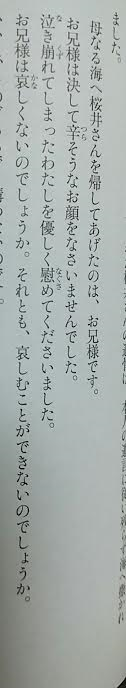 ました。
母なる海へ桜井さんを帰してあげたのは、お兄様です。
お兄様は決して辛そうなお顔をなさいませんでした。
泣き崩れてしまったわたしを優しく慰めてくださいました。
お兄様は哀しくないのでしょうか。それとも、哀しむことができないのでしょうか。